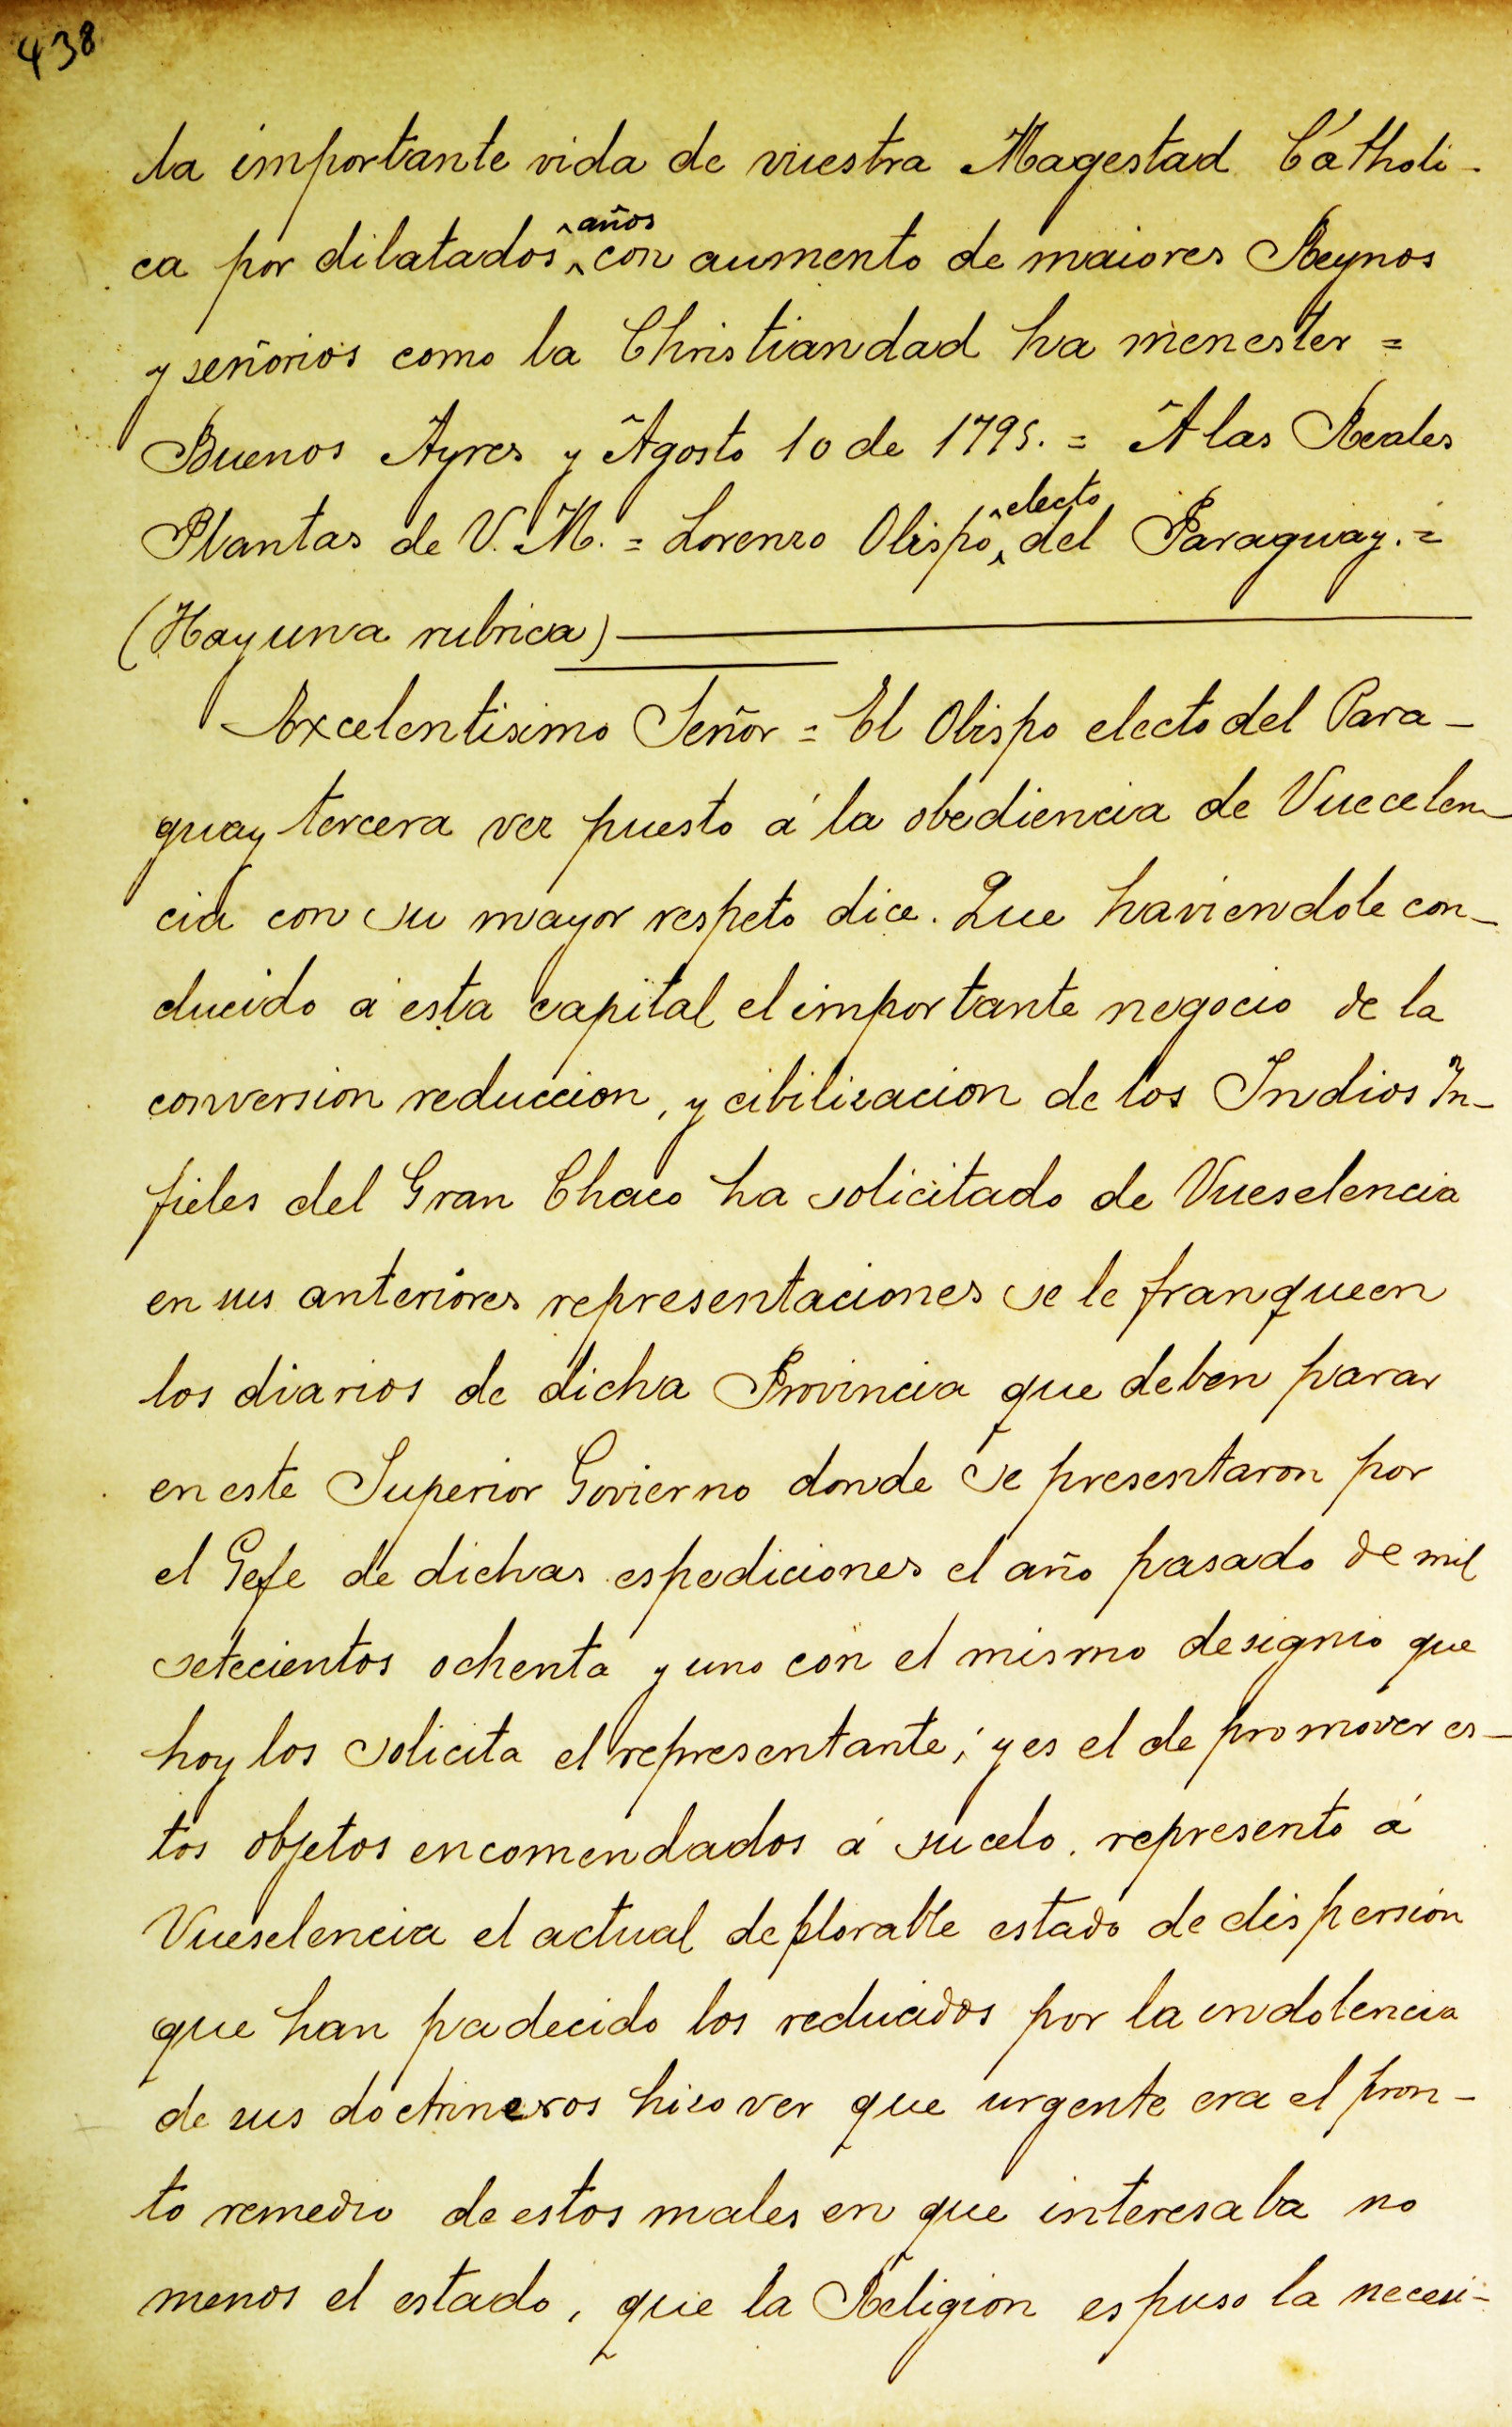 438
la importante vida de vuestra Magestad Cátholi-
ca por dilatados ^años^ con aumento de maiores Reynos
y señorios como la Christiandad ha menester =
Buenos Ayres y Agosto 10 de 1795. = A las Reales
Plantas de V. M. = Lorenzo Obispo ^electo^ del Paraguay. =
(Hay una rubrica)
Excelentisimo Señor = El Obispo electo del Para-
guay tercera vez puesto á la obediencia de Vuecelen
cia con su mayor respeto dice. Que haviendole con-
ducido á esta capital el importante negocio de la
conversion reduccion, y cibilizacion de los Indios In-
fieles del Gran Chaco ha solicitado de Vueselencia
en sus anteriores representaciones se le franqueen
los diarios de dicha Provincia que deben parar
en este Superior Govierno donde se presentaron por
el Gefe de dichas espediciones el año pasado de mil
setecientos ochenta y uno con el mismo designio que
hoy los solicita el representante; y es el de promover es-
tos objetos encomendados á su celo. represento á
Vueselencia el actual deplorable estado de dispersión
que han padecido los reducidos por la indolencia
de sus doctrineros hizo ver que urgente era el pron-
to remedio de estos males en que interesaba no
menos el estado, que la Religion espuso la necesi-